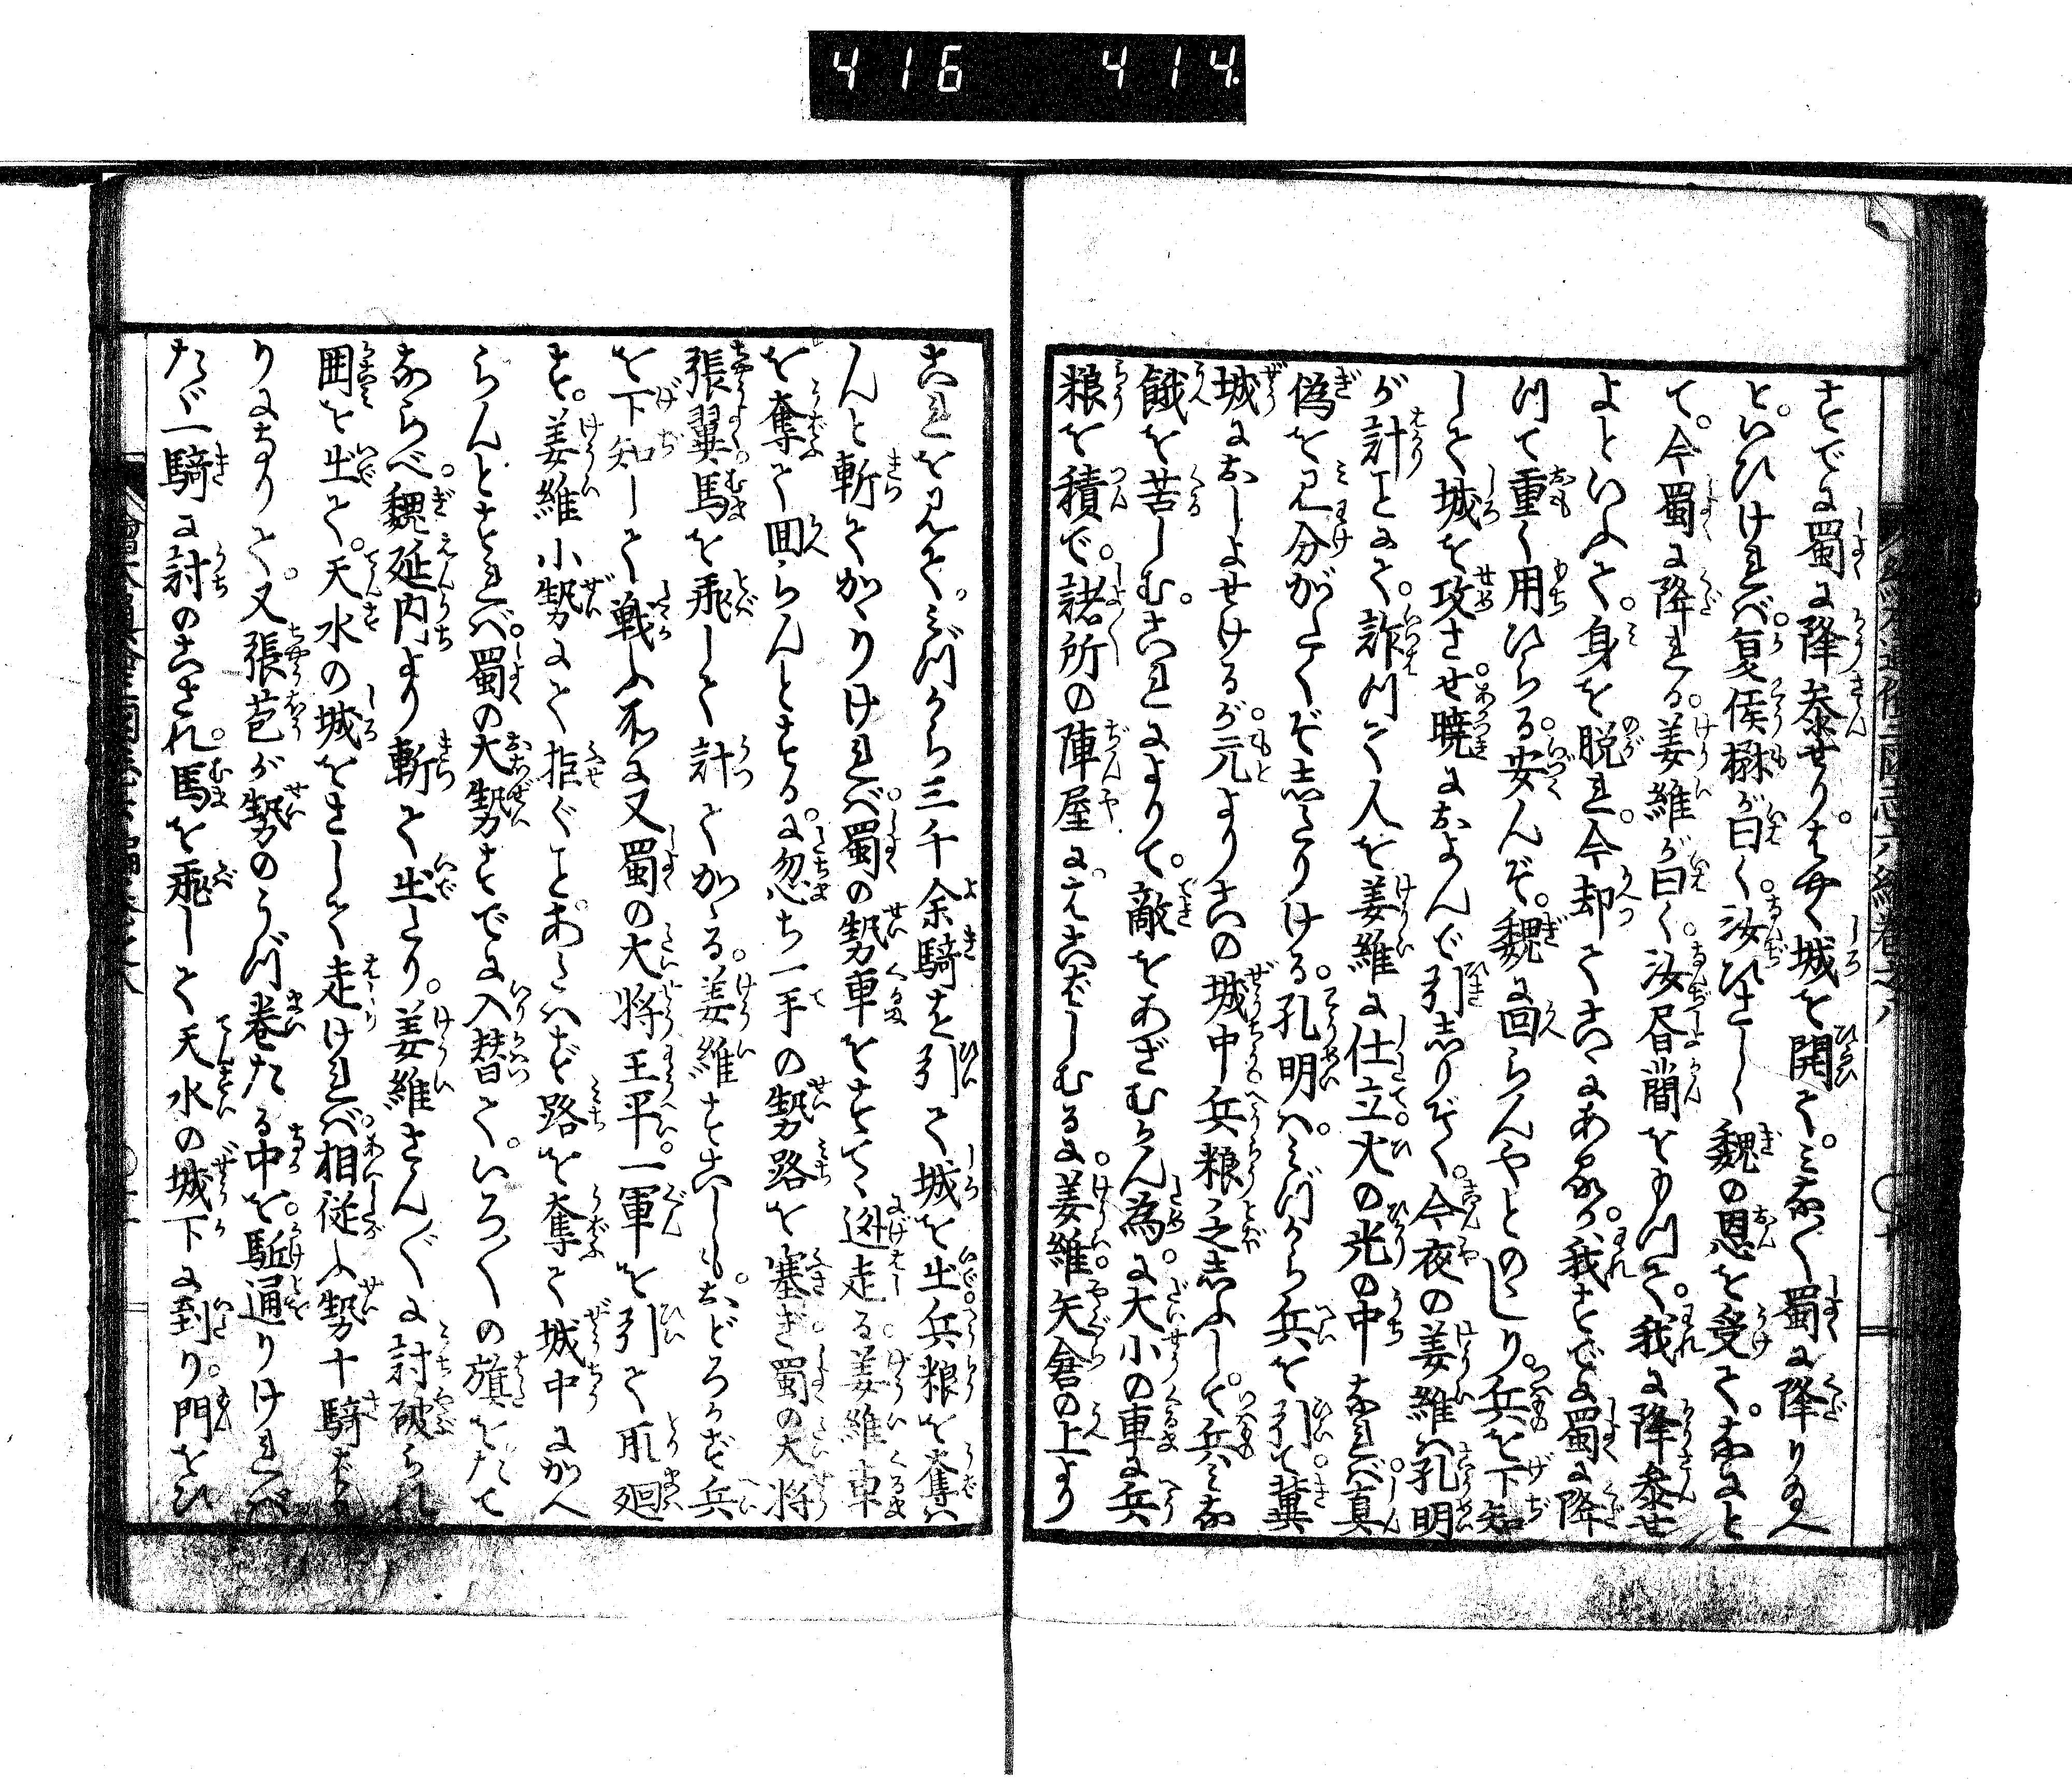 416 414
すでに蜀に降参せり。はやく城を開て。みな〳〵蜀に降り玉へ
といひければ。夏侯楙が曰く。汝ひさしく魏の恩を受て。なにと
て。今蜀に降れる。姜維が曰く。汝昼簡をやつて。我に降参せ
よといふて。身を脱れ。今却てこゝにあるか。我すでに蜀に降
つて重く用ひらる。安んぞ。魏に回らんやとのゝしり。兵を下知
して城を攻させ。暁におよんで引しりぞく。今夜の姜維は孔明
が計ことにて。詐つて人を姜維に仕立。火の光の中なれば。真
偽を見分がたくぞ志たりける。孔明は。みづから兵を引て。冀
城におしよせけるが。元よりこの城中兵粮乏しふして。兵みな
餓を苦しむ。これによりて。敵をあざむかん為。に大小の車に兵
粮を積で。諸所の陣屋に。はこばしむるに。姜維。矢倉の上より
これを見て。みづから三千余騎を引て城を出。兵粮を奪は
んと斬てかゝりければ。蜀の勢車をすてゝ迯走る。姜維車
を奪て回らんとする。に忽ち一手の勢路を塞ぎ。蜀の大将
張翼。馬を飛して討てかゝる。姜維すこしも。おどろかず兵
を下知して戦ふ所に又蜀の大将王平。一軍を引て取廻
す。姜維小勢にて拒ぐことあたはず路を奪て城中にかへ
らんとすれば。蜀の大勢すでに入替て。いろ〳〵の旗をたて
ならべ。魏延内より斬て出たり。姜維さん〴〵に討破られ
囲を出て。天水の城をさして走ければ。相従ふ勢十騎ばか
りになりて。又張苞が勢のうづ巻たる中を。駈通りければ
たゞ一騎に討のこされ。馬を飛して天水の城下に到り。門をひ